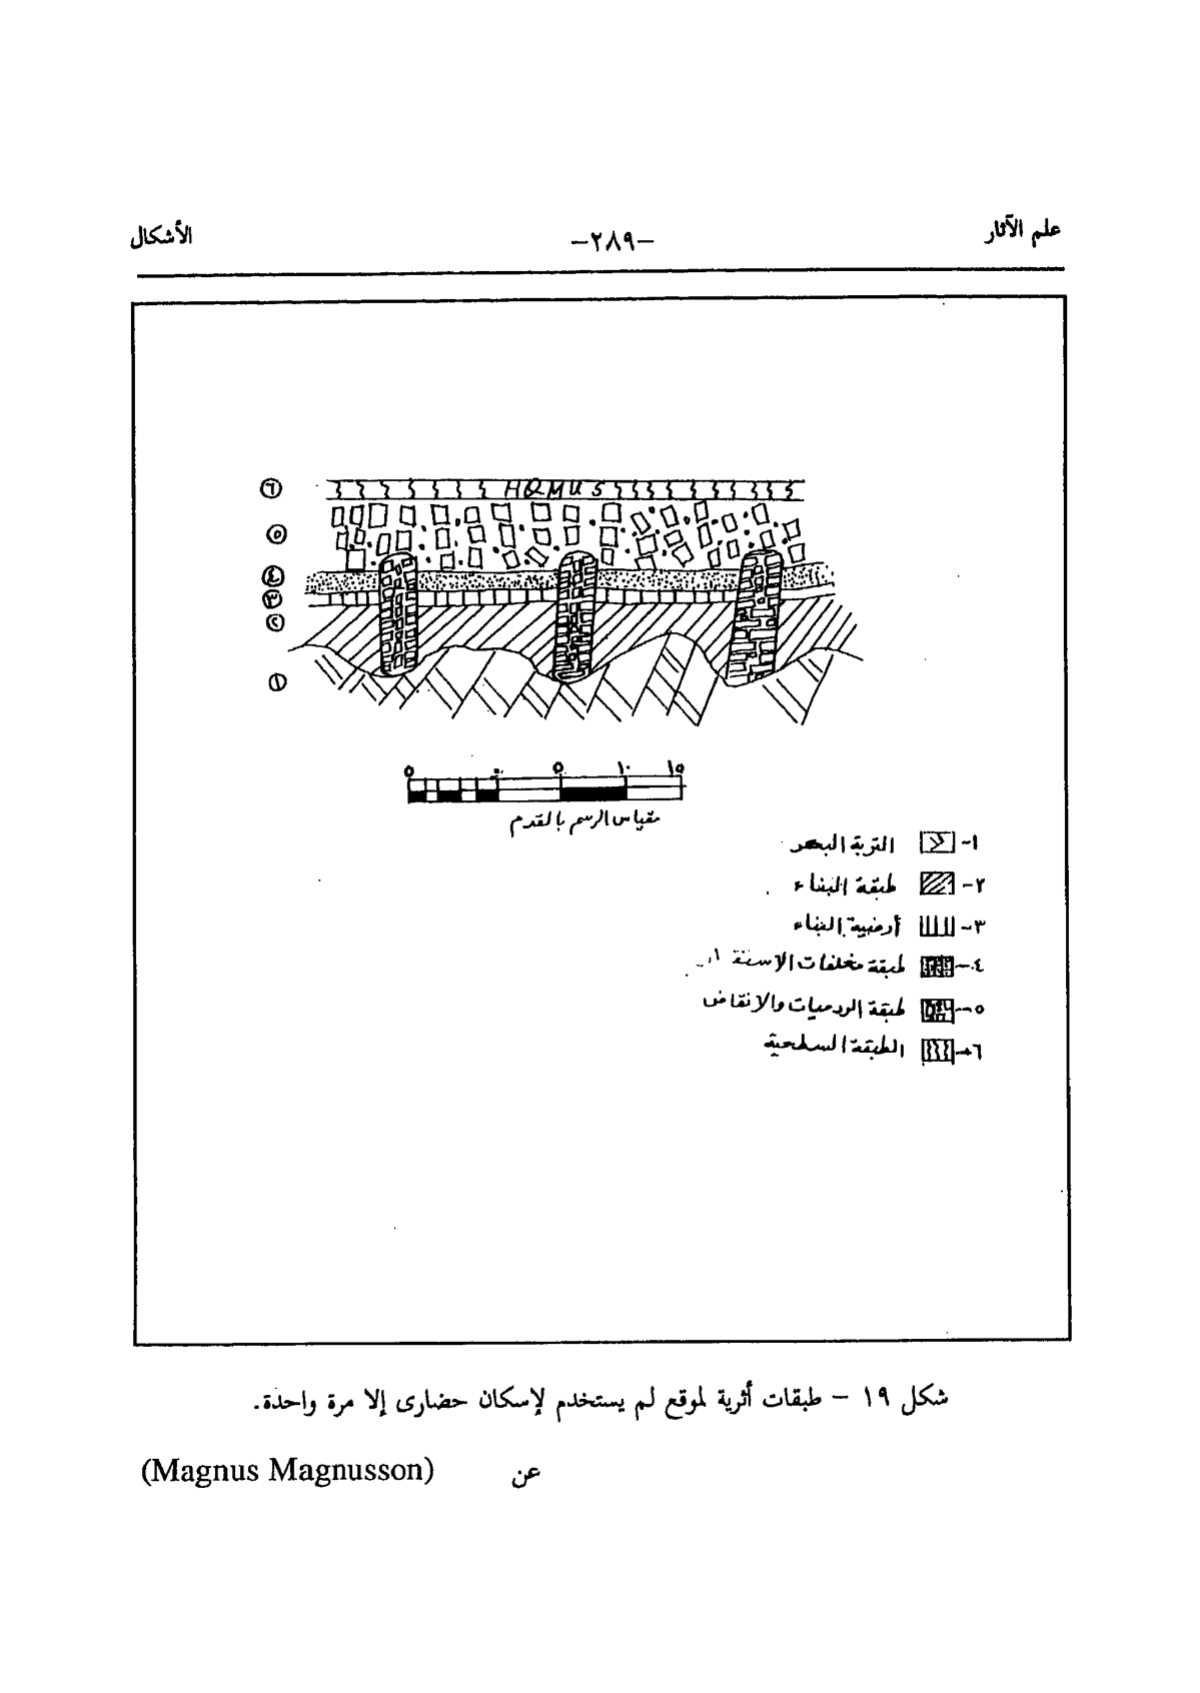 علم الآثار
-٢٨٩-
الأشكال
٦
HQMUS
٥
٤
٣
٢
١
٥ ٠ ٥ ١٠ ١٥
مقياس الرسم بالقدم
١- التربة البكر
٢- طبقة البناء
٣- أرضية البناء
٤- طبقة مخلفات الاستقرار
٥- طبقة الرديميات والانقاض
٦- الطبقة السطحية
شكل ١٩ - طبقات أثرية لموقع لم يستخدم لإسكان حضارى إلا مرة واحدة.
عن (Magnus Magnusson)